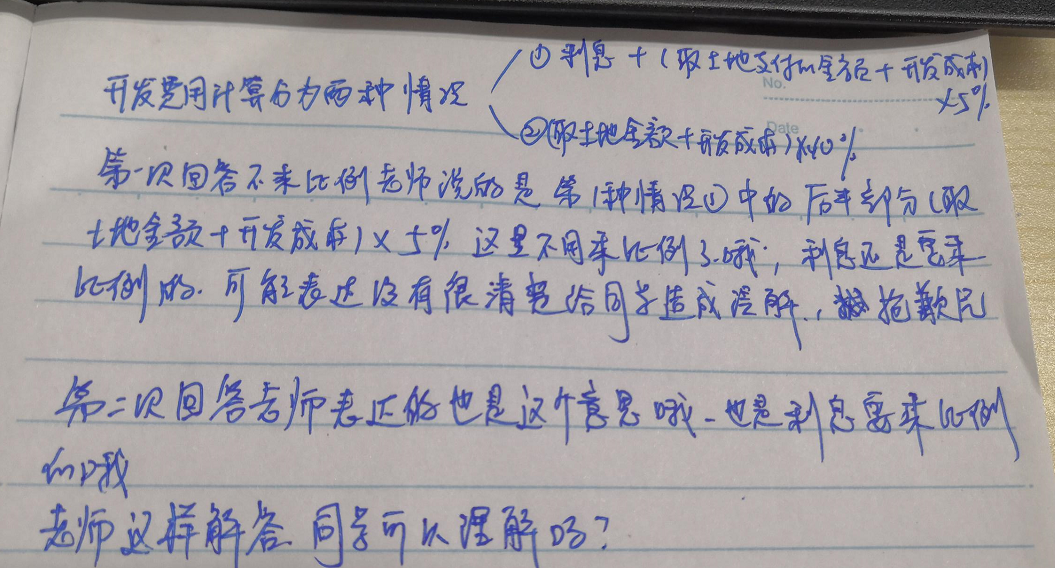 开发费用计算分为两种情况
①利息+(取土地支付的金额+开发成本)
×5%
②(取土地金额+开发成本)×10%
No.
Date
第一次回答不乘比例老师说的是第1种情况①中的后半部分(取
土地金额+开发成本)×5% 这里不用乘比例了哦,利息还是要乘
比例的.可能表达没有很清楚给同学造成误解.,抱歉哈
第二次回答老师表述的也是这个意思哦-也是利息要乘比例
的哦
老师这样解答 同学可以理解吗?